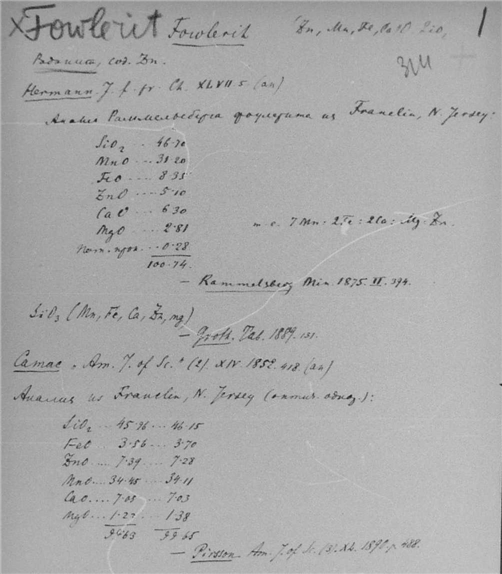 Fowlerit Fowlerit (Zn, Mn, Fe, Ca)O. SiO2 1
Родонит, сод. Zn.
Hermann. J. f. pr. Ch. XLVII. 5 (an)
Анализ Раммельсберга фоулерита из Franclin, N. Jersey:
SiO2 .. 46.70
MnO ... 31.20
FeO ... 8.35
ZnO ... 5.10
CaO .. 6.30
MgO ... 2.81
Пот. при прок. .. 0.28
100.74.
т. е. 7Mn : 2Fe : 2Ca : Mg : Zn.
— Rammelsberg Min. 1875. II. 394.
SiO3 (Mn, Fe, Ca, Zn, Mg)
— Groth. Tab. 1889. 131.
Camac. Am. J. of Sc. (2). XIV 1852. 418 (an)
Анализ из Franclin, N. Jersey
SiO2 ... 45.76 ... 46.15
FeO ... 3.56 ... 3.70
ZnO .... 7.39 .... 7.28
MnO ... 34.45 ... 34.11
CaO .... 7.05 .... 7.03
MgO ... 1.27 ... 1.38
99.65
— Pirsson. Am. J. of Sc. (3). XL. 1890. p. 488.